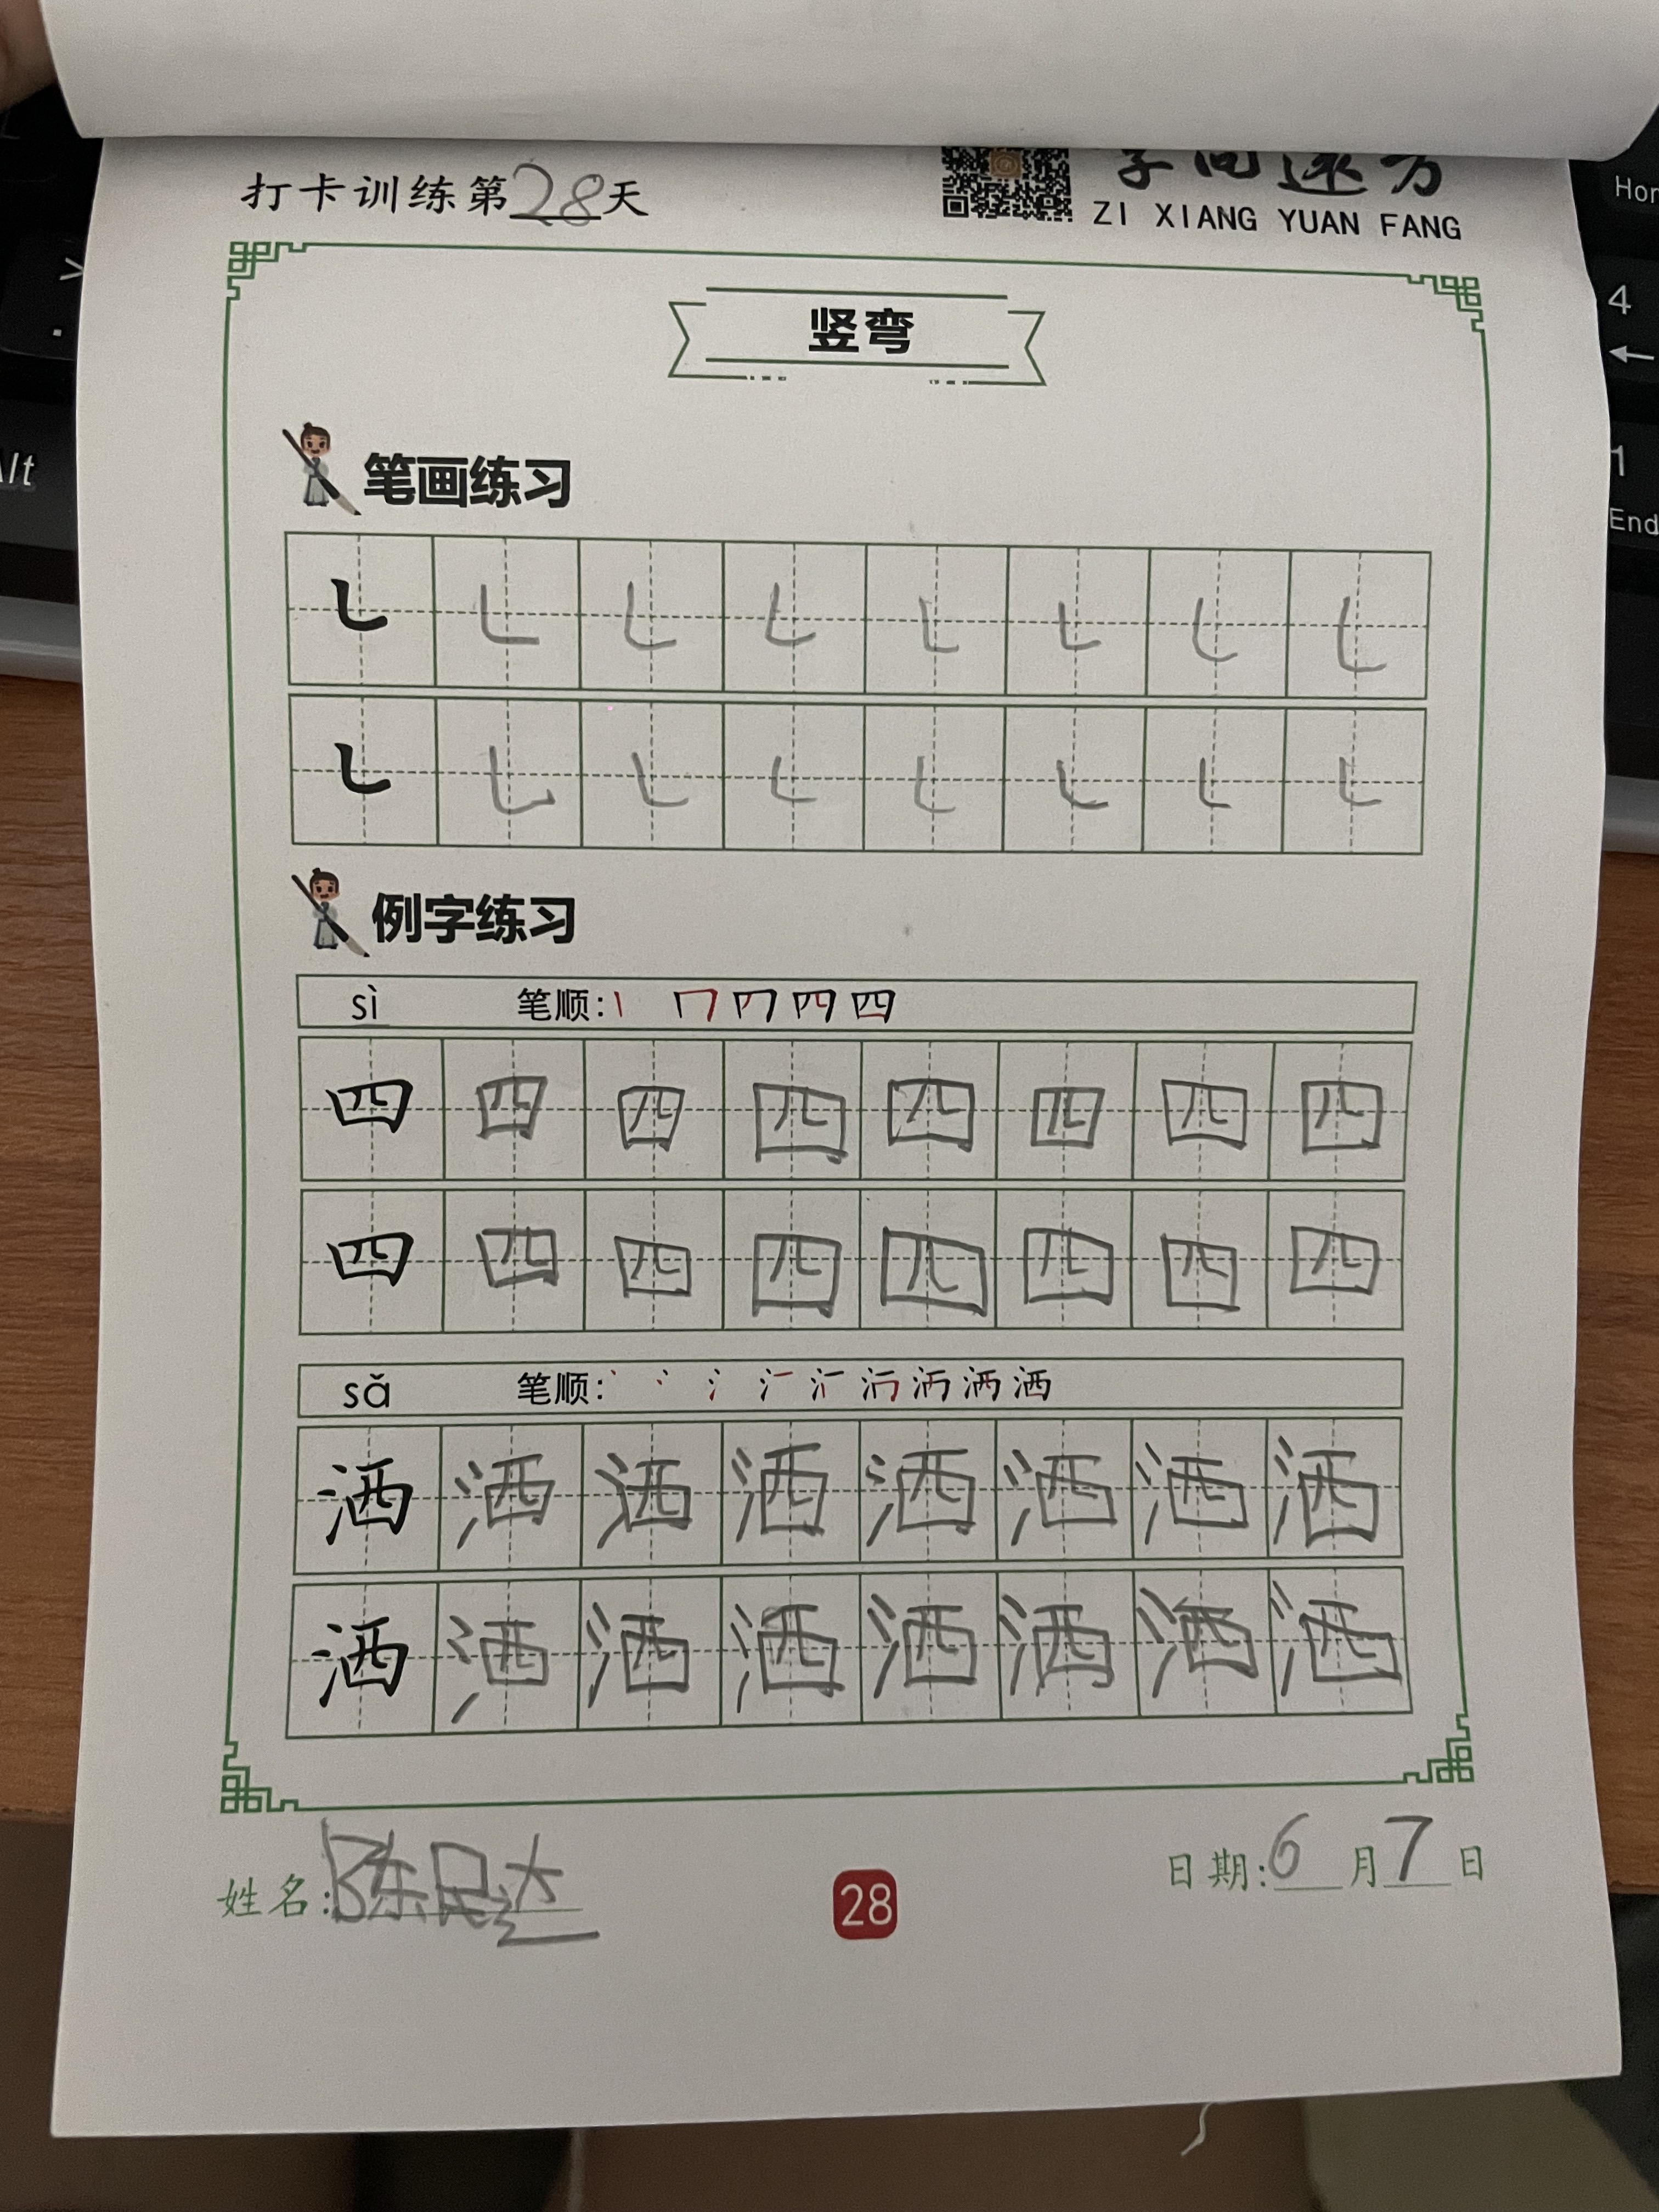 打卡训练第28天
字向远方
ZI XIANG YUAN FANG
竖弯
笔画练习
例字练习
sì 笔顺:
四 四 四 四 四 四 四 四
四 四 四 四 四 四 四 四
sǎ 笔顺:
洒 洒 洒 洒 洒 洒 洒 洒
洒 洒 洒 洒 洒 洒 洒 洒
姓名:陈民达
28
日期:6月7日
Alt
Hom
4
←
1
End